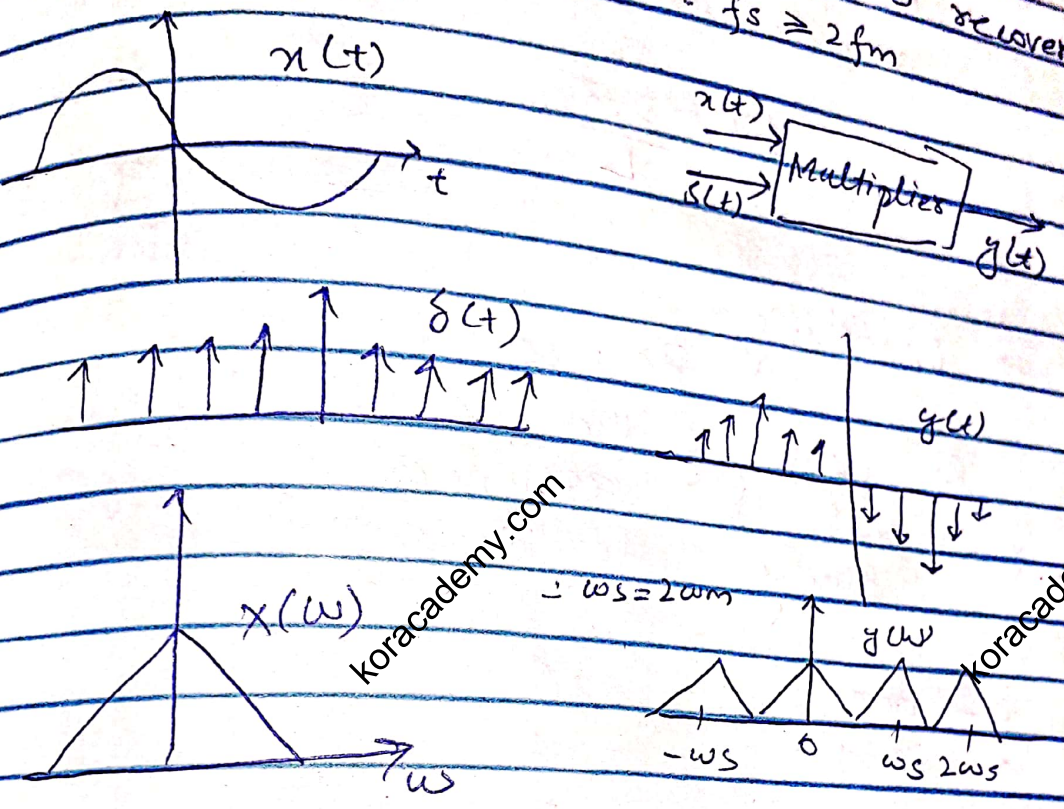 recover
fs ≥ 2fm
x(t)
x(t)
s(t)
Multiplier
y(t)
t
δ(t)
y(t)
koracademy.com
∴ ωs=2ωm
X(ω)
y(ω)
koracad
-ωs 0 ωs 2ωs
ω